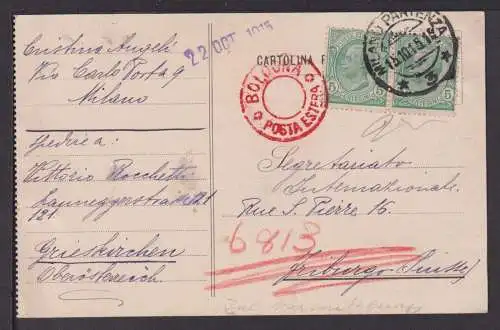 Cristina Angeli
Via Carlo Porta 9
Milano
Spedire a:
Vittorio Rocchetti
121
Grieskirchen
Oberösterreich
22 OCT 1915
CARTOLINA
BOLOGNA
POSTA ESTERA
MILANO PARTENZA
5
Segretariato
Internazionale
Rue S. Pierre 16
6813
Friburgo (Suisse)